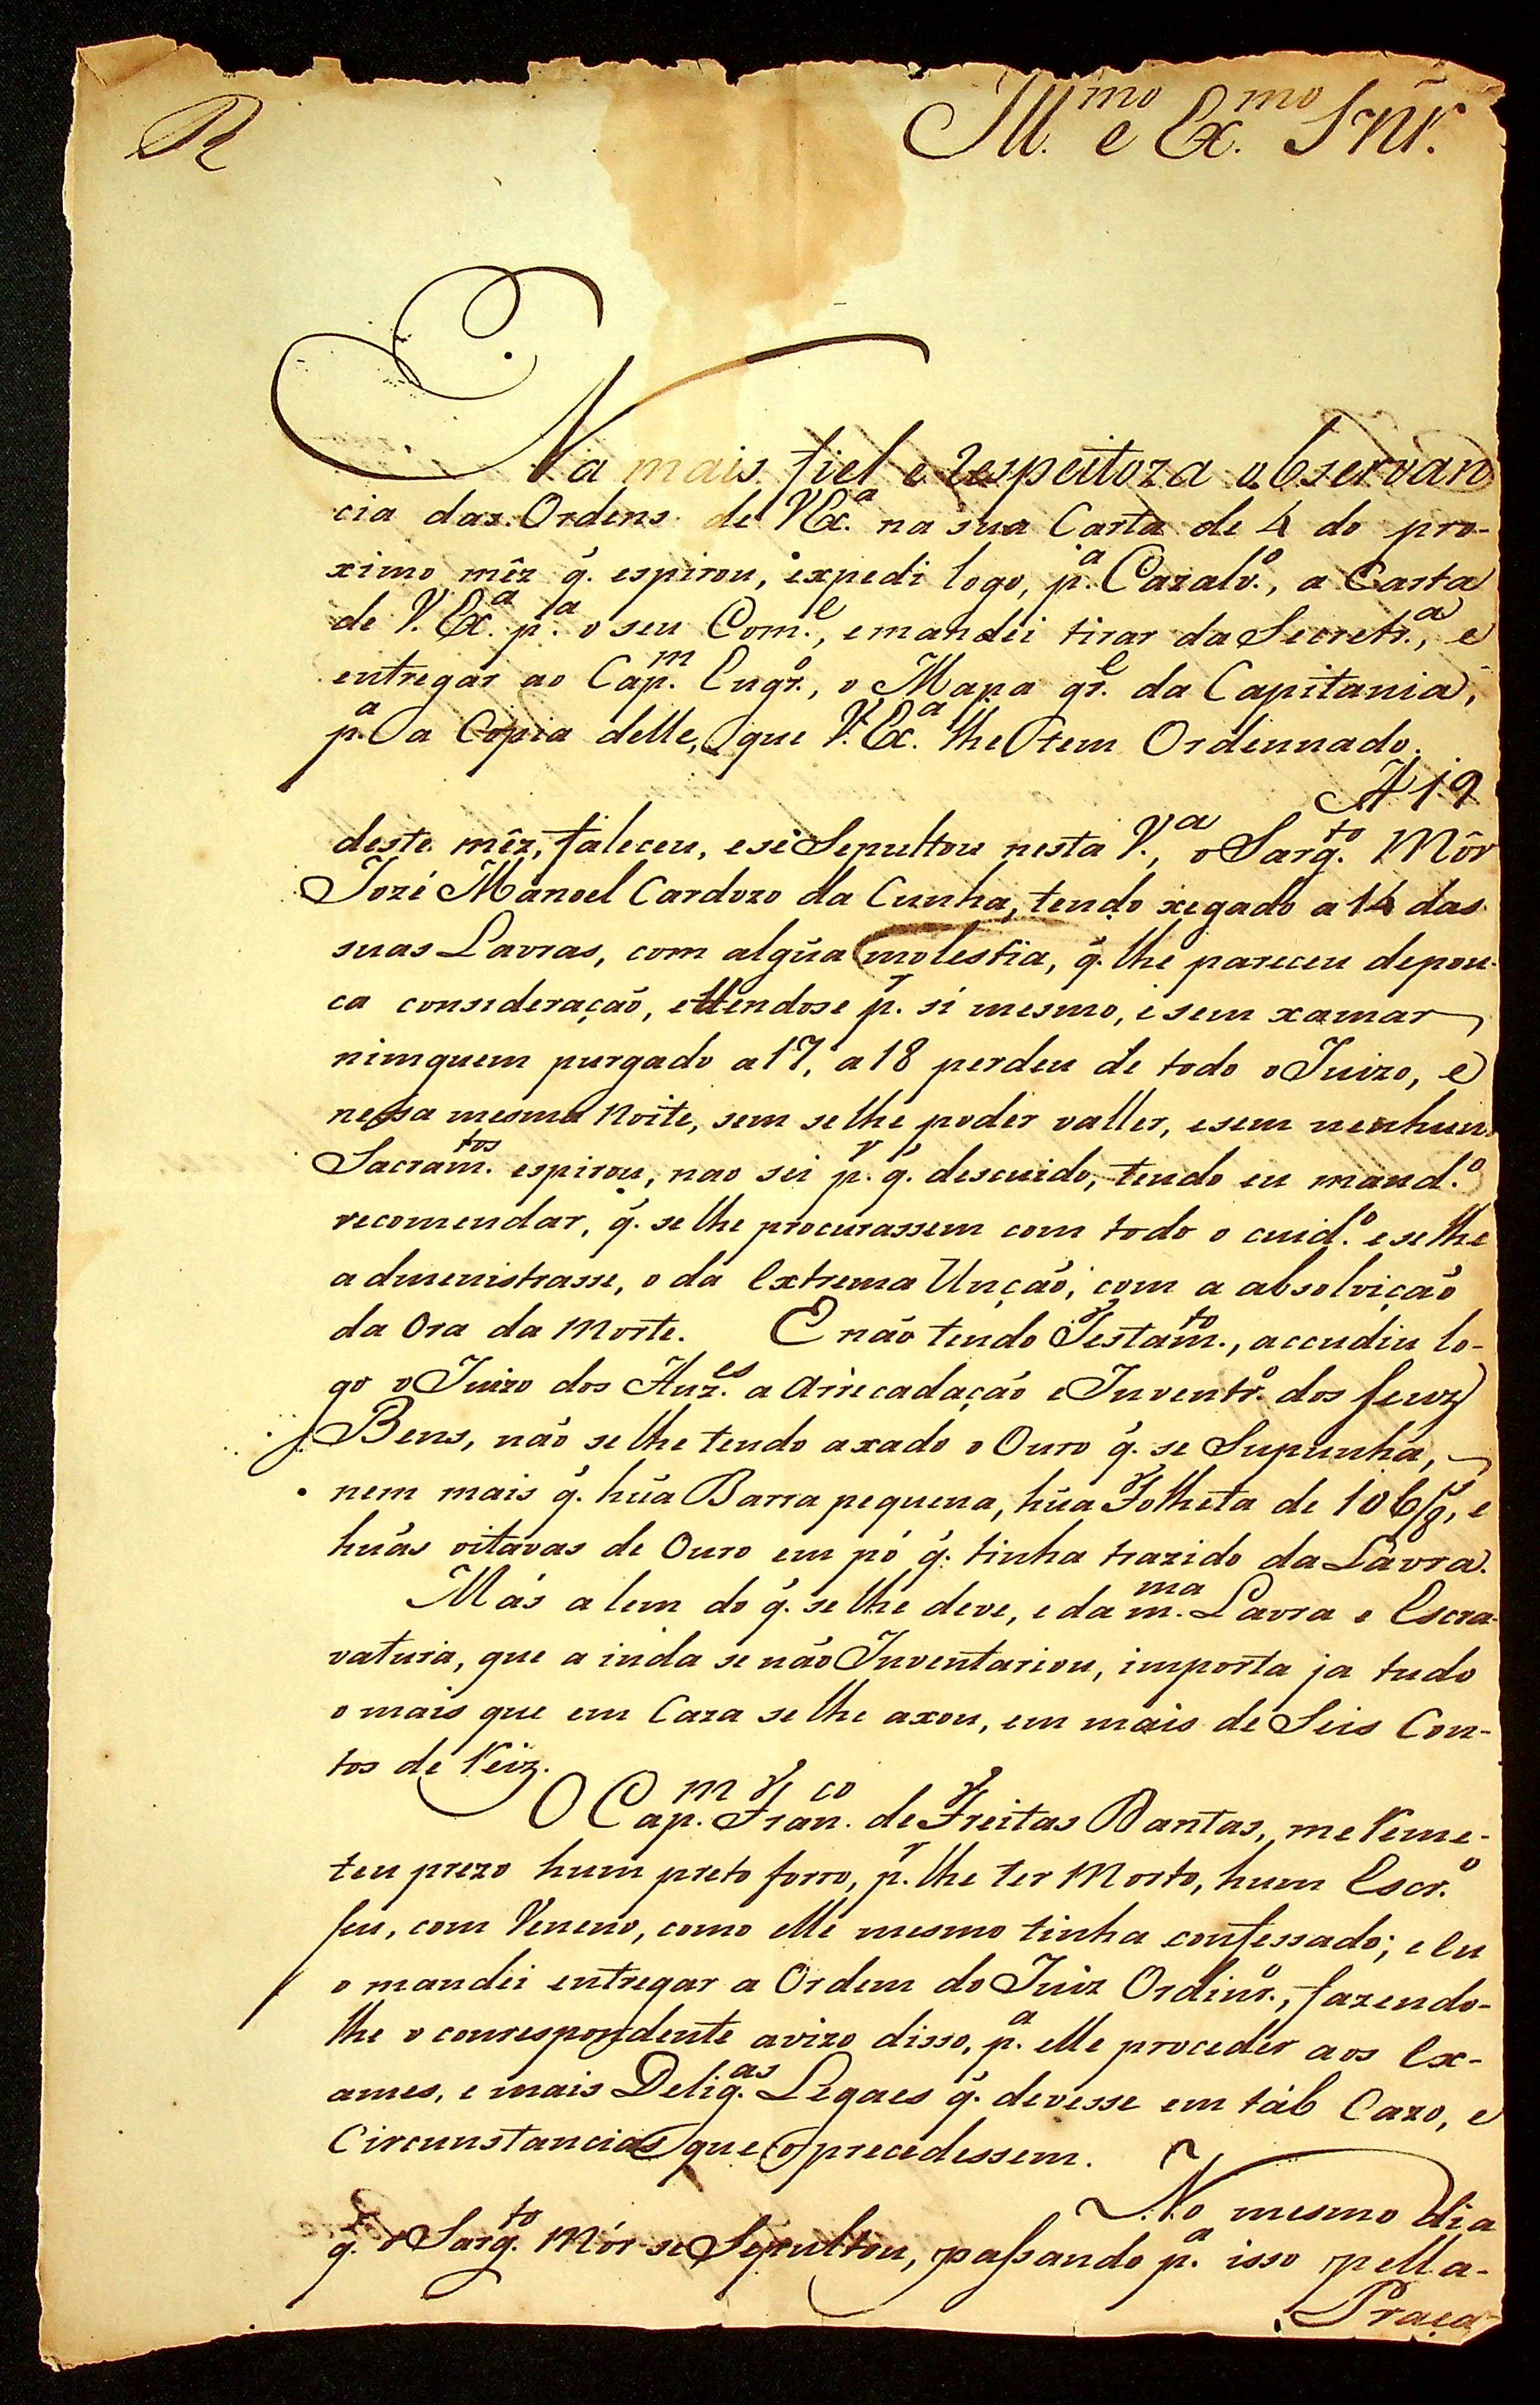 R
Ill.mo e Ex.mo Snr.
Na mais fiel e respeitoza observan
cia das Ordens de V Ex.a na sua Carta de 4 do pro-
ximo mêz q̃. espirou, expedi logo, p.a Cazalv.o, a Carta
de V. Ex.a p.a o seu Com.e, e mandei tirar da Secretr.a, e
entregar ao Cap.m Engr.o, o Mapa gr.l da Capitania,
p.a a Copia delle, que V. Ex.a lhe tem Ordennado.
A 19
deste mêz, faleceu, e se Sepultou nesta V.a, o Sarg.to Môr
Jozé Manoel Cardozo da Cunha, tendo xegado a 14 das
suas Lavras, com algũa molestia, q̃. lhe pareceu depou-
ca consideração, e tendose p.r si mesmo, e sem xamar
nimguem purgado a 17, a 18 perdeu de todo o Juizo, e
nessa mesma Noite, sem se lhe poder valler, e sem nenhun
Sacram.tos espirou, nao sei p.r q̃. descuido, tendo eu mand.o
recomendar, q̃. se lhe procurassem com todo o cuid.o e se lhe
admenistrasse, o da Extrema Unção, com a absolvição
da Ora da Morte. E não tendo Testam.to, accudiu lo-
go o Juizo dos Auz.es a Arrecadação e Inventr.o dos seuz
Bens, não se lhe tendo axado o Ouro q̃. se Supunha,
nem mais q̃. hũa Barra pequena, hũa Folheta de 106/8, e
huãs oitavas de Ouro em pó q̃. tinha trazido da Lavra.
Más alem do q̃. se lhe deve, e da m.ma Lavra e Escra-
vatura, que ainda se não Inventariou, importa ja tudo
o mais que em Caza se lhe axou, em mais de Seis Con-
tos de Reiz.
O Cap.m Fran.co de Freitas Dantas, me Reme-
teu prezo hum preto forro, p.r lhe ter Morto, hum Escr.o
seu, com Veneno, como elle mesmo tinha confessado; e Eu
o mandei entregar a Ordem do Juiz Ordinr.o, fazendo-
lhe o correspondente avizo disso, p.a elle proceder aos Ex-
ames, e mais Delig.as Legaes q̃. devesse em tal Cazo, e
Circunstancias que o precedessem.
No mesmo dia
q̃. o Sarg.to Mór se Sepultou, passando p.a isso pella-
Praça